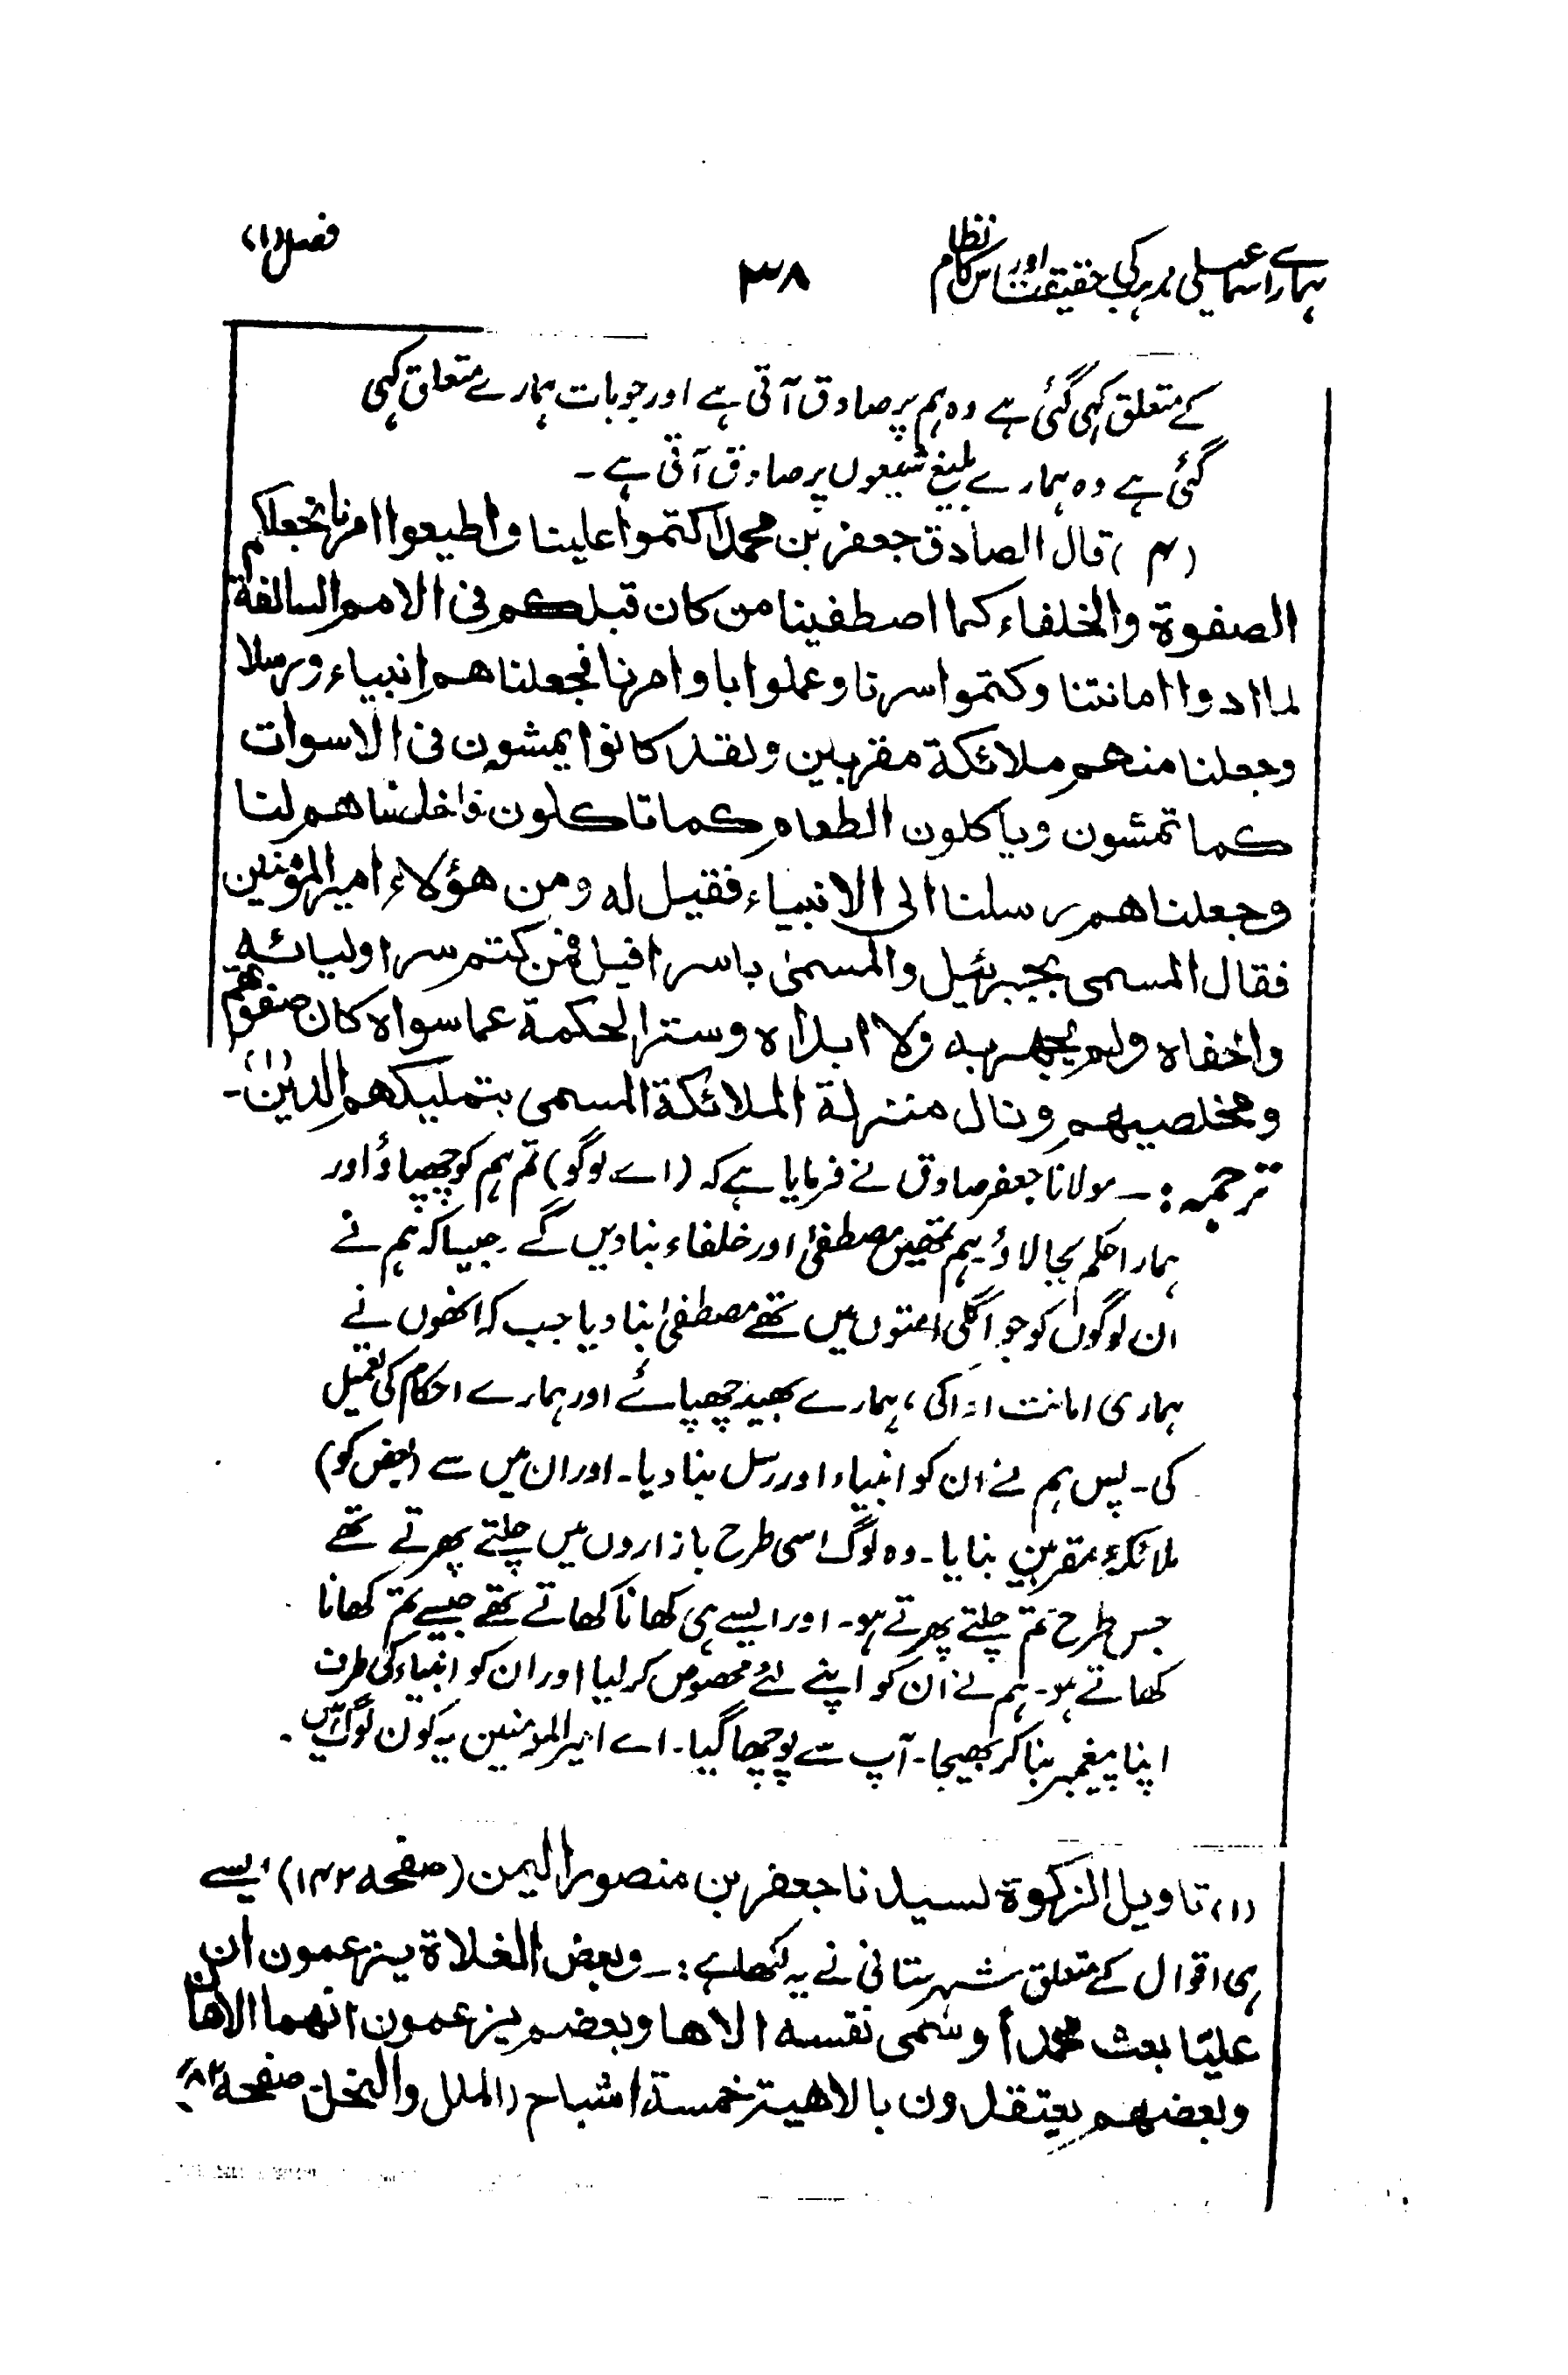 ہمارے اسماعیلی مذہب کی حقیقت اور اس کا نظام
۳۸
فصل (۱)
کے متعلق کہی گئی ہے وہ ہم پر صادق آتی ہے اور جو بات ہمارے متعلق کہی
گئی ہے وہ ہمارے بلیغ شیعوں پر صادق آتی ہے ۔
(۴) قال الصادق جعفر بن محمد اکتموا علینا و اطیعوا امرنا نجعلکم
الصفوة والخلفاء کما اصطفینا من کان قبلکم فی الامم السالفة
لما ادوا امانتنا و کتموا سرنا و عملوا باوامرنا فجعلناهم انبیاء و رسلا
وجعلنا منهم ملائکة مقربین ولقد کانوا یمشون فی الاسوات
کما تمشون ویاکلون الطعام کما تاکلون فاخلصناهم لنا
وجعلناهم رسلنا الی الانبیاء فقیل له ومن هؤلاء امیر المؤمنین
فقال المسمی بجبرئیل والمسمیٰ باسرافیل فمن کتم سر اولیائه
واخفاه ولم یجهر به ولا ابداه وستر الحکمة عما سواه کان صفوتهم
ومخلصیهم ونال منزلة الملائکة المسمی بتملیکهم الدین (۱)۔
ترجمہ :۔ مولانا جعفر صادق نے فرمایا ہے کہ (اے لوگو) تم ہم کو چھپاؤ اور
ہمارا حکم بجا لاؤ ہم تمھیں مصطفیٰ اور خلفاء بنا دیں گے ۔ جیسا کہ ہم نے
ان لوگوں کو جو اگلی امتوں میں تھے مصطفیٰ بنا دیا جب کہ انھوں نے
ہماری امانت ادا کی ، ہمارے بھید چھپائے اور ہمارے احکام کی تعمیل
کی ۔ پس ہم نے ان کو انبیاء اور رسل بنا دیا ۔ اور ان میں سے (بعض کو)
ملائکۂ مقربین بنایا ۔ وہ لوگ اسی طرح بازاروں میں چلتے پھرتے تھے
جس طرح تم چلتے پھرتے ہو ۔ اور ایسے ہی کھانا کھاتے تھے جیسے تم کھانا
کھاتے ہو ۔ ہم نے ان کو اپنے لئے مخصوص کر لیا اور ان کو انبیاء کی طرف
اپنا پیغمبر بنا کر بھیجا ۔ آپ سے پوچھا گیا ۔ اے امیر المؤمنین یہ کون لوگ ہیں ۔
(۱) تاویل الزکوة لسیدنا جعفر بن منصور الیمن (صفحہ ۱۴۲) ایسے
ہی اقوال کے متعلق شہرستانی نے یہ لکھا ہے :۔ وبعض الغلاة یزعمون ان
علیّا بعث محمداً وسمی نفسه الاها وبعضهم یزعمون انهما الاهان
وبعضهم یعتقدون بالاهیة خمسة اشباح (الملل والنحل صفحہ ۸۲)